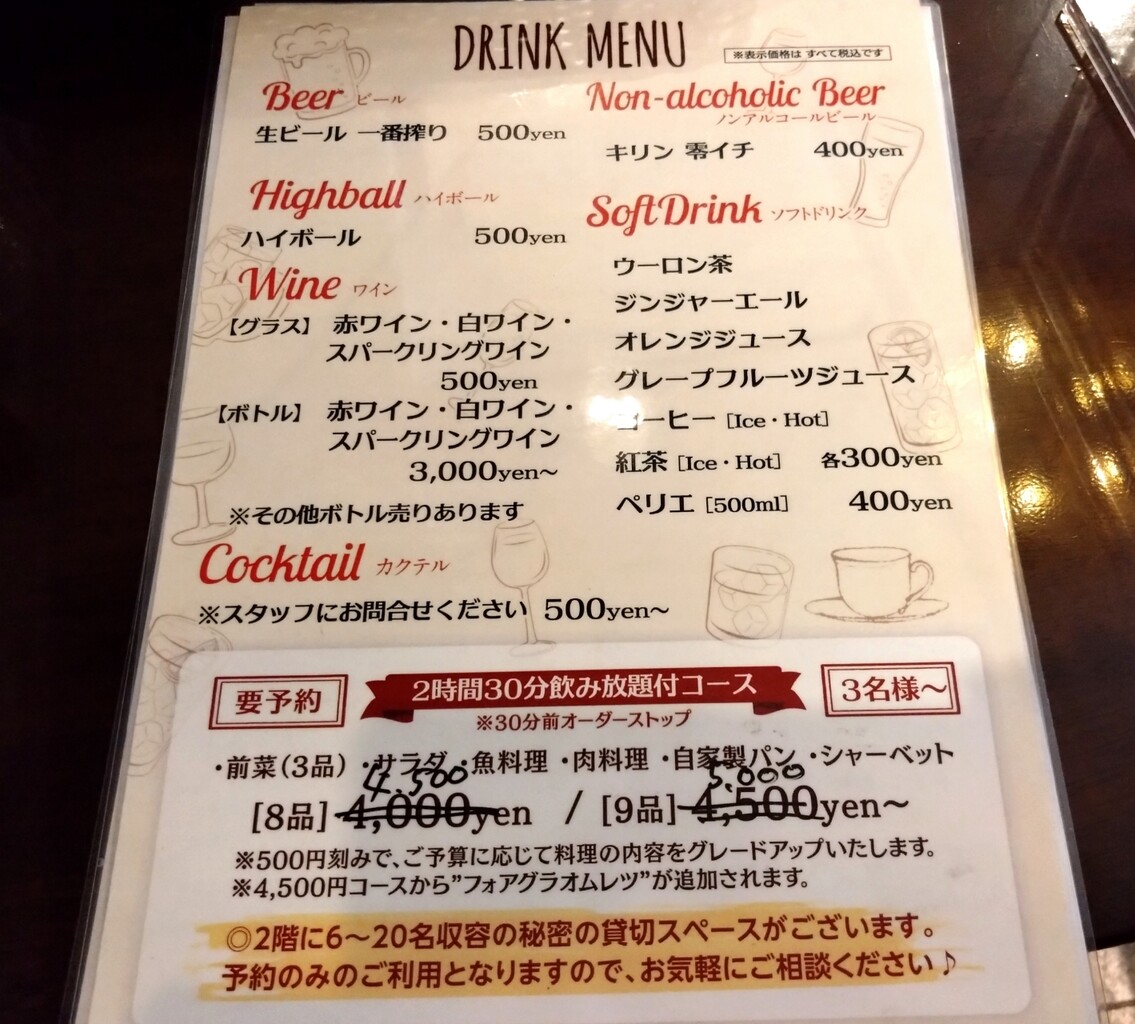 DRINK MENU
※表示価格は すべて税込です
Beer ビール
生ビール 一番搾り 500yen
Highball ハイボール
ハイボール 500yen
Wine ワイン
【グラス】 赤ワイン・白ワイン・
スパークリングワイン
500yen
【ボトル】 赤ワイン・白ワイン・
スパークリングワイン
3,000yen~
※その他ボトル売りあります
Cocktail カクテル
※スタッフにお問合せください 500yen~
Non-alcoholic Beer
ノンアルコールビール
キリン 零イチ 400yen
Soft Drink ソフトドリンク
ウーロン茶
ジンジャーエール
オレンジジュース
グレープフルーツジュース
コーヒー [Ice・Hot]
紅茶 [Ice・Hot] 各300yen
ペリエ [500ml] 400yen
要予約
2時間30分飲み放題付コース
3名様~
※30分前オーダーストップ
・前菜(3品) ・サラダ ・魚料理 ・肉料理 ・自家製パン ・シャーベット
4,500 5,000
[8品] 4,000yen / [9品] 4,500yen~
※500円刻みで、ご予算に応じて料理の内容をグレードアップいたします。
※4,500円コースから"フォアグラオムレツ"が追加されます。
◎2階に6~20名収容の秘密の貸切スペースがございます。
予約のみのご利用となりますので、お気軽にご相談ください♪